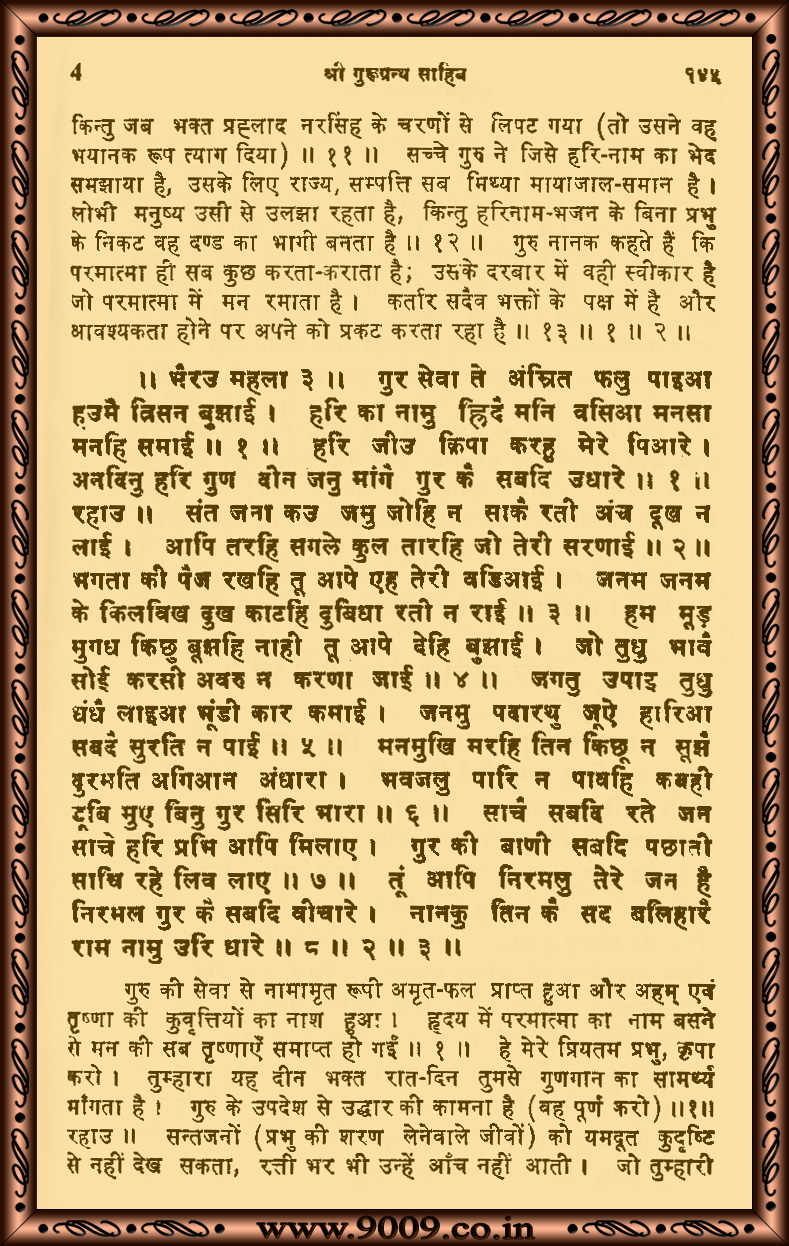 4 श्री गुरूग्रन्थ साहिब १४५
किन्तु जब भक्त प्रह्लाद नरसिंह के चरणों से लिपट गया (तो उसने वह
भयानक रूप त्याग दिया) ॥ ११ ॥ सच्चे गुरु ने जिसे हरि-नाम का भेद
समझाया है, उसके लिए राज्य, सम्पत्ति सब मिथ्या मायाजाल-समान है।
लोभी मनुष्य उसी से उलझा रहता है, किन्तु हरिनाम-भजन के बिना प्रभु
के निकट वह दण्ड का भागी बनता है ॥ १२ ॥ गुरु नानक कहते हैं कि
परमात्मा ही सब कुछ करता-कराता है; उसके दरबार में वही स्वीकार है
जो परमात्मा में मन रमाता है। कर्तार सदैव भक्तों के पक्ष में है और
आवश्यकता होने पर अपने को प्रकट करता रहा है ॥ १३ ॥ १ ॥ २ ॥
॥ भैरउ महला ३ ॥ गुर सेवा ते अंम्रित फलु पाइआ
हउमै त्रिसन बुझाई। हरि का नामु ह्रिदै मनि वसिआ मनसा
मनहि समाई ॥ १ ॥ हरि जीउ क्रिपा करहु मेरे पिआरे।
अनदिनु हरि गुण दीन जनु मांगै गुर कै सबदि उधारे ॥ १ ॥
रहाउ ॥ संत जना कउ जमु जोहि न साकै रती अंच दूख न
लाई। आपि तरहि सगले कुल तारहि जो तेरी सरणाई ॥ २ ॥
भगता की पैज रखहि तू आपे एह तेरी वडिआई। जनम जनम
के किलविख दुख काटहि दुबिधा रती न राई ॥ ३ ॥ हम मूड़
मुगध किछु बूझहि नाही तू आपे देहि बुझाई। जो तुधु भावै
सोई करसी अवरु न करणा जाई ॥ ४ ॥ जगतु उपाइ तुधु
धंधै लाइआ भूंडी कार कमाई। जनमु पदारथु जूऐ हारिआ
सबदै सुरति न पाई ॥ ५ ॥ मनमुखि मरहि तिन किछू न सूझै
दुरमति अगिआन अंधारा। भवजलु पारि न पावहि कबही
डूबि मुए बिनु गुर सिरि भारा ॥ ६ ॥ साचै सबदि रते जन
साचे हरि प्रभि आपि मिलाए। गुर की बाणी सबदि पछाती
साचि रहे लिव लाए ॥ ७ ॥ तूं आपि निरमलु तेरे जन है
निरमल गुर कै सबदि वीचारे। नानकु तिन कै सद बलिहारै
राम नामु उरि धारे ॥ ८ ॥ २ ॥ ३ ॥
गुरु की सेवा से नामामृत रूपी अमृत-फल प्राप्त हुआ और अहम् एवं
तृष्णा की कुवृत्तियों का नाश हुआ। हृदय में परमात्मा का नाम बसने
से मन की सब तृष्णाएँ समाप्त हो गईं ॥ १ ॥ हे मेरे प्रियतम प्रभु, कृपा
करो। तुम्हारा यह दीन भक्त रात-दिन तुमसे गुणगान का सामर्थ्य
माँगता है। गुरु के उपदेश से उद्धार की कामना है (वह पूर्ण करो) ॥१॥
रहाउ ॥ सन्तजनों (प्रभु की शरण लेनेवाले जीवों) को यमदूत कुदृष्टि
से नहीं देख सकता, रत्ती भर भी उन्हें आँच नहीं आती। जो तुम्हारी
www.9009.co.in